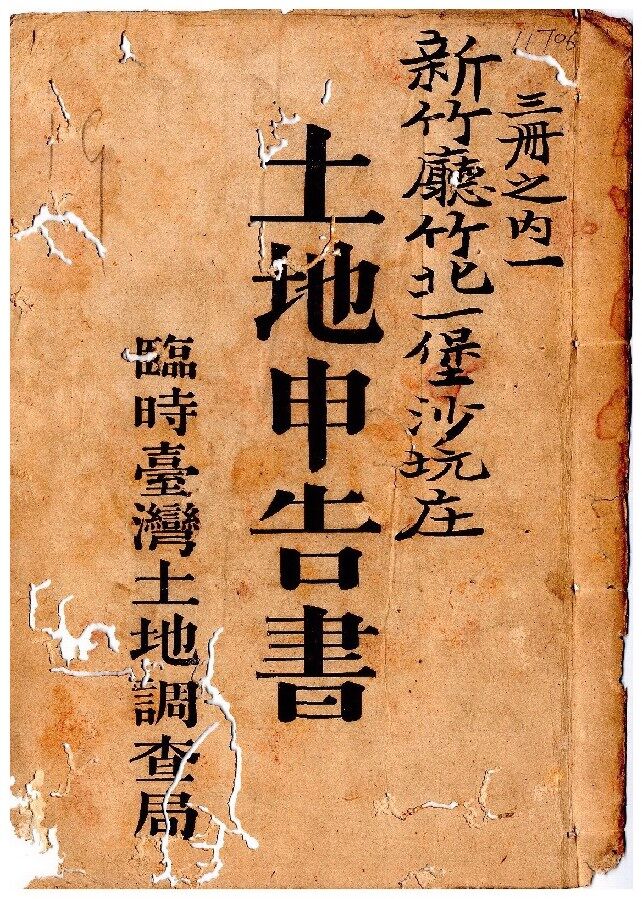 11706
三冊之内一
新竹廳竹北一堡沙坑庄
土地申告書
臨時臺灣土地調査局